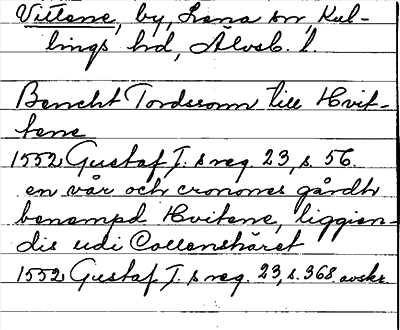 Vittene, by, Lena sn, Kul-
lings hd, Älvsb. l.
Bencht Tordssonn till Hvit-
tene
1552 Gustaf I. s reg. 23, s. 56.
en vår och crones gårdh
benempd Hvitene, liggien-
dis udi Collenshäret
1552 Gustaf I. s reg. 23, s. 368 avskr.